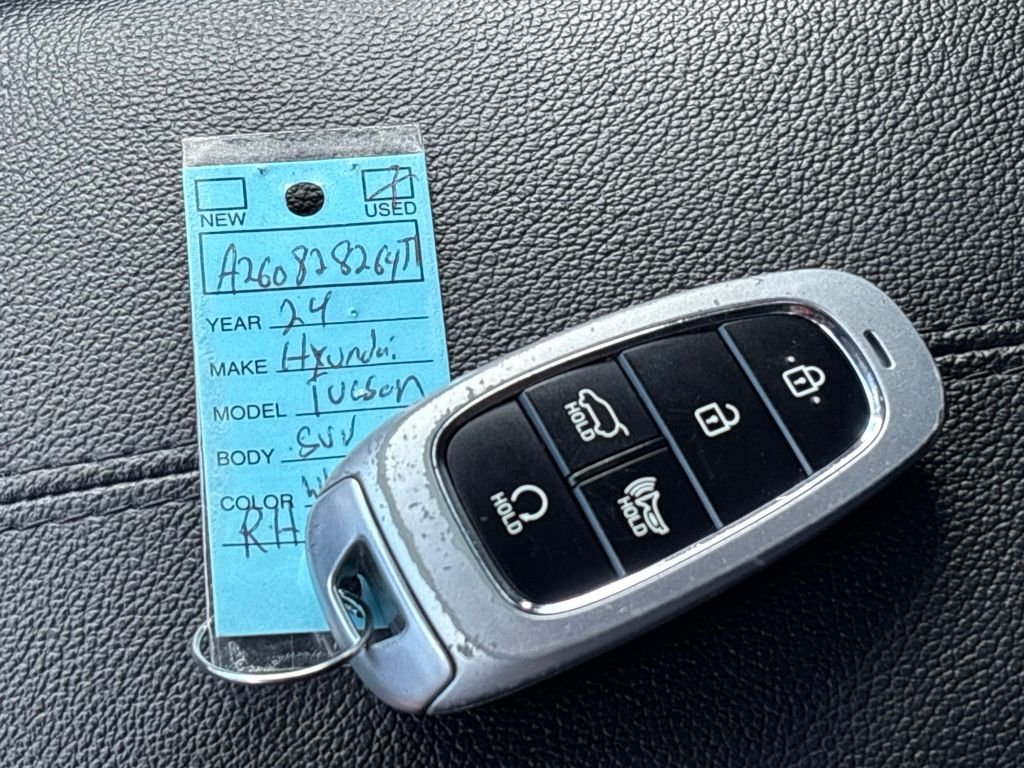 NEW USED
A260828264T
YEAR 24
MAKE Hyundai
MODEL Tucson
BODY SUV
COLOR W
RH
HOLD
HOLD
HOLD